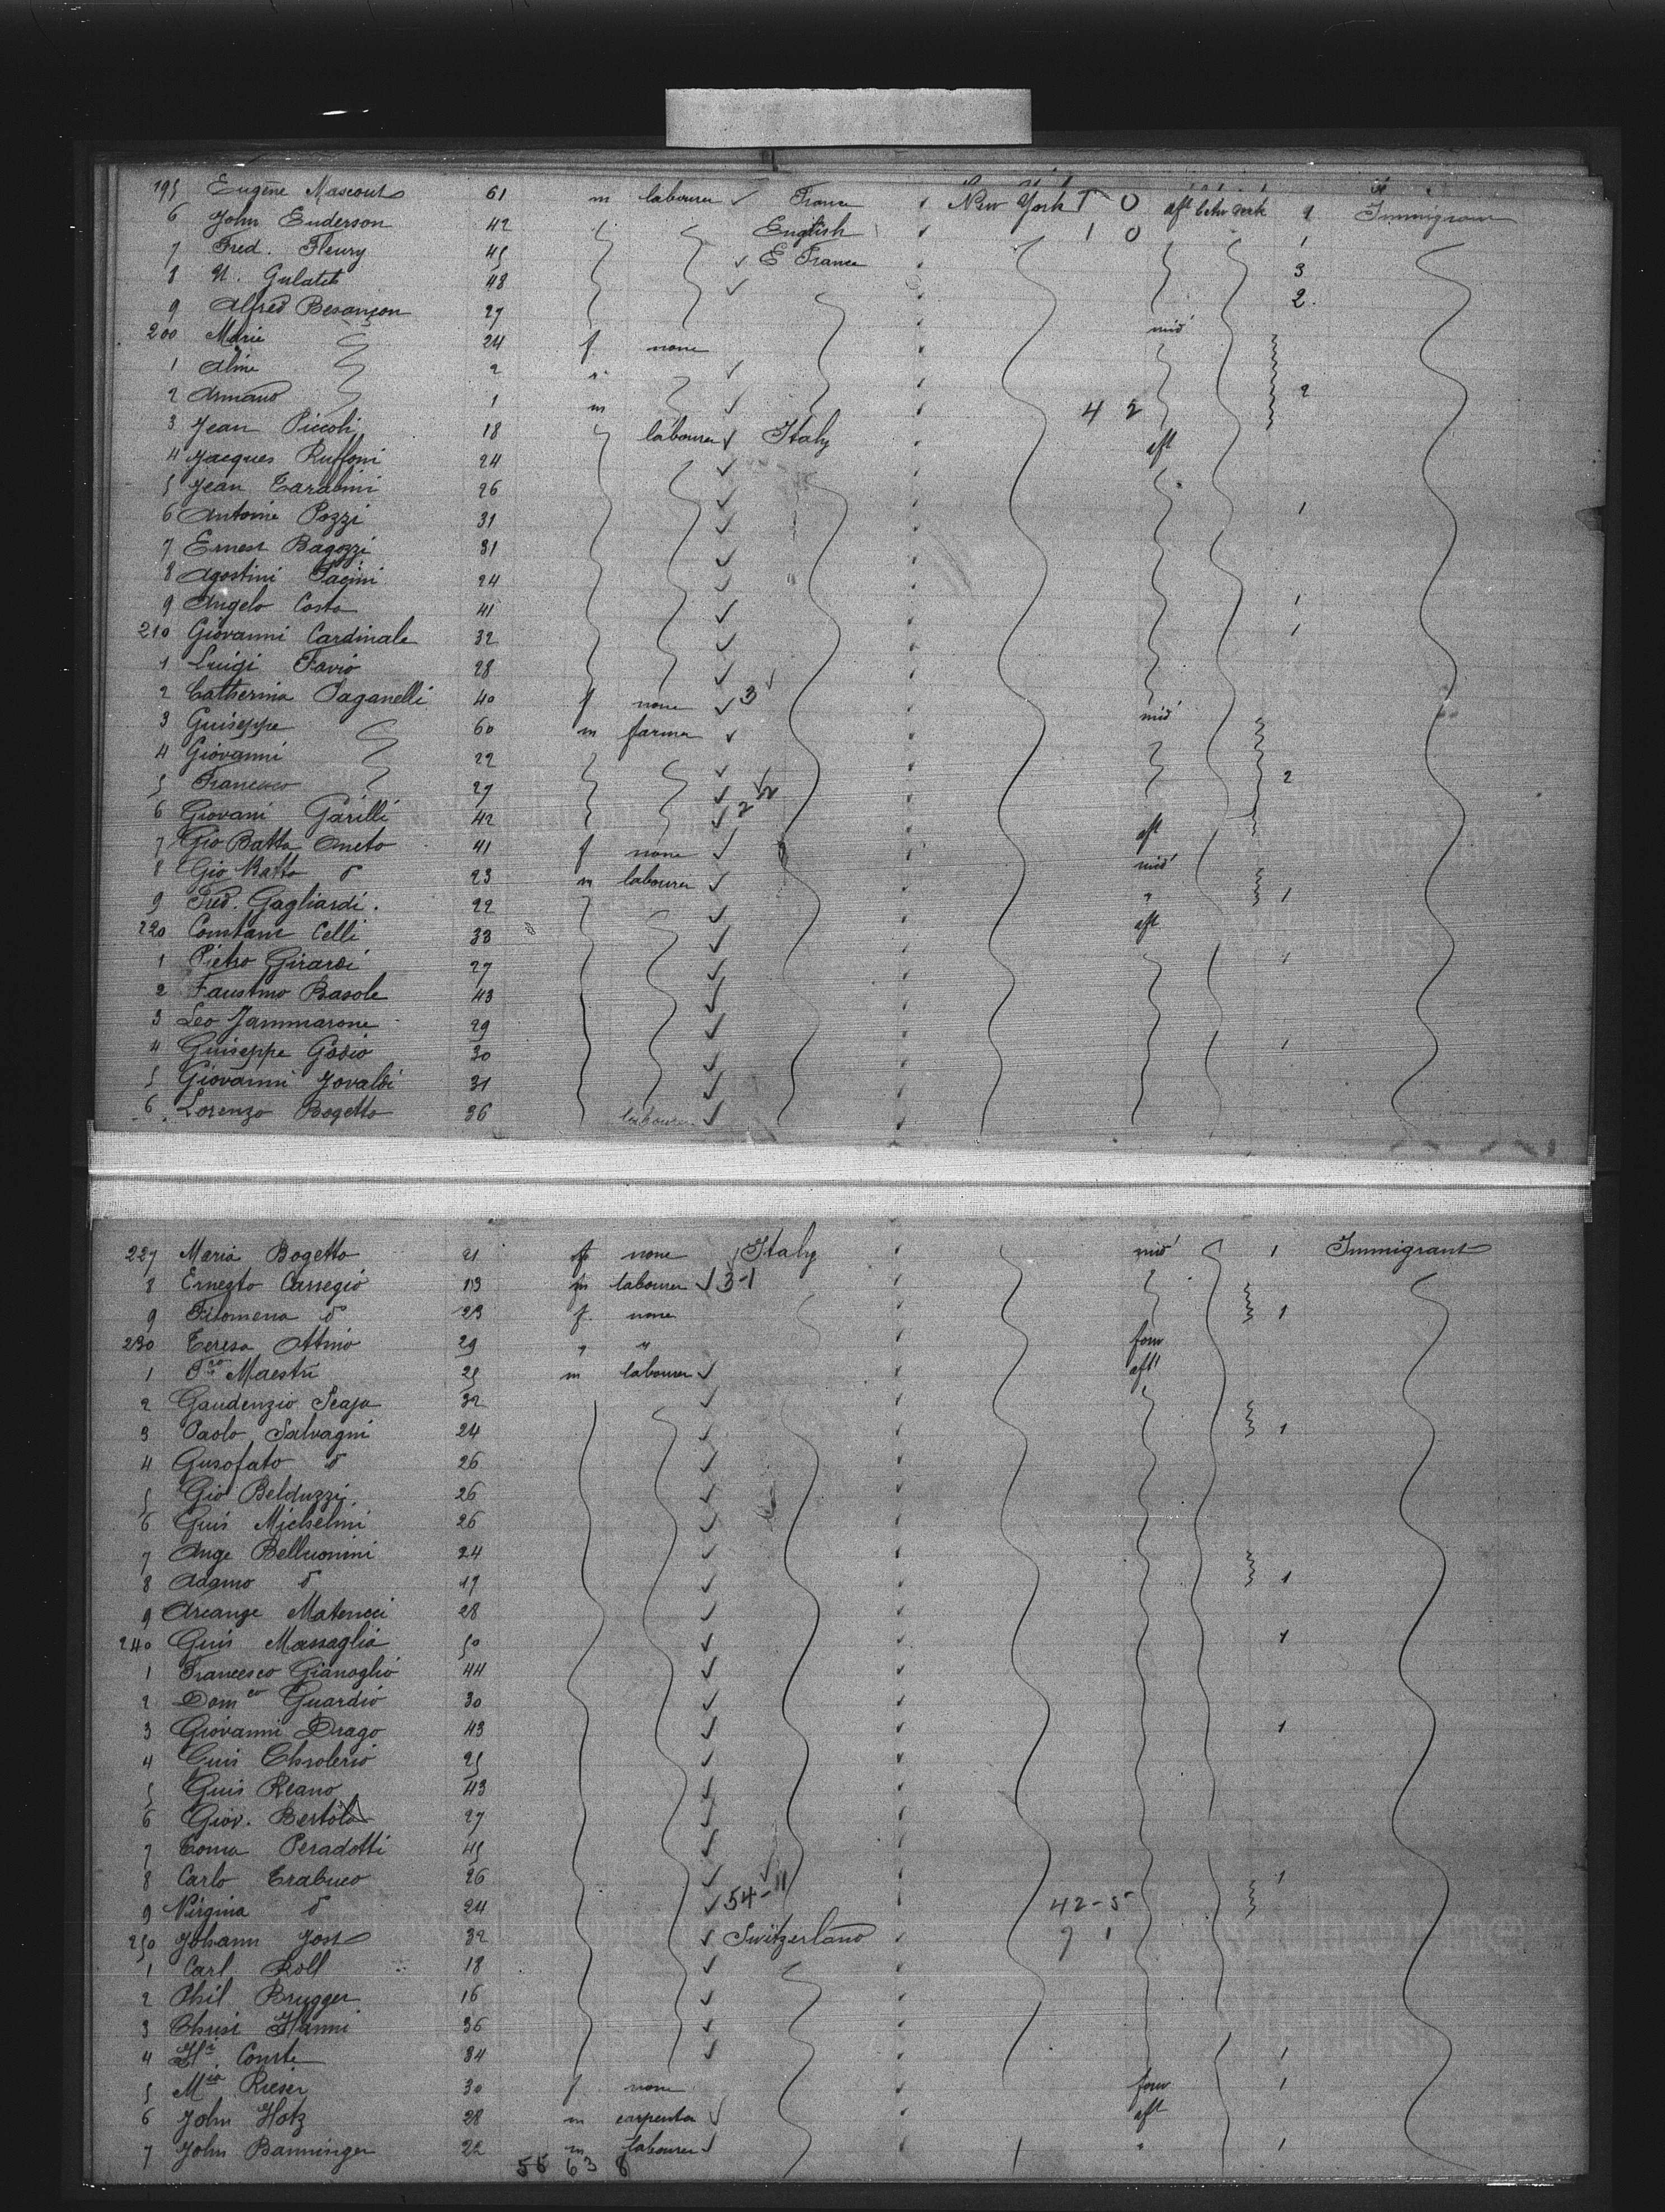 195 Eugène Mascout 61 m labourer ✓ France New York 1 0 aft betw deck 1 Immigrant
6 John Enderson 42 English 1 0 1
7 Fred. Fleury 45 ✓ E France 3
8 N. Gulatit 48 ✓ 2.
9 Alfred Besançon 27
200 Marie 24 f none mid
1 Aline 2 ✓
2 Armand 1 m ✓ 4 2 2
3 Jean Piccoli 18 labourer ✓ Italy aft
4 Jacques Ruffoni 24 ✓
5 Jean Tarabini 26 ✓
6 Antoine Pozzi 31 ✓ 1
7 Ernest Bagozzi 31 ✓
8 Agostini Pagini 24 ✓
9 Angelo Costa 41 ✓ 1
210 Giovanni Cardinale 32 ✓ 1
1 Luigi Favio 28 ✓
2 Catherina Paganelli 40 f none ✓ 3 mid
3 Guiseppe 60 m farmer ✓
4 Giovanni 22 ✓
5 Francesco 27 ✓ 2
6 Giovani Garilli 42 ✓ 2 aft
7 Gio Batta Oneto 41 f none ✓ mid
8 Gio Batta d 23 m labourer ✓
9 Fred. Gagliardi. 22 ✓ " 1
220 Constant Celli 33 ✓ aft
1 Pietro Girardi 27 ✓ 1
2 Faustino Basole 43 ✓
3 Leo Jammarone 29 ✓
4 Guiseppe Godio 30 ✓ 1
5 Giovanni Jovaldi 31 ✓
6 Lorenzo Bogetto 36 labourer ✓
227 Maria Bogetto 21 f none Italy mid 1 Immigrant
8 Ernesto Carregio m labourer ✓ 3-1
9 Filomena d 23 f. none 1
230 Teresa Ottino 29 " " forw
1 Maestri 25 m labourer ✓ aft
2 Gaudenzio Scaja 32 ✓
3 Paolo Salvagni 24 ✓ 1
4 Gusofato d 26 ✓
5 Gio Belduzzi 26 ✓
6 Guis Michelini 26 ✓
7 Ange Belluomini 24 ✓
8 Adamo d 19 ✓ 1
9 Arcange Matencci 28 ✓
240 Guis Massaglia 50 ✓ 1
1 Francesco Gianoglio 44 ✓
2 Domco Guardio 30 ✓
3 Giovanni Drago 43 ✓ 1
4 Guis Chrolerio 25 ✓
5 Guis Reano 43 ✓
6 Giov. Bertola 27 ✓
7 Toma Peradotti 45 ✓
8 Carlo Trabuco 26 ✓ 1
9 Virginia d 24 ✓ 54-11 42-5
250 Johann Jost 32 ✓ Switzerland 9 1
1 Carl Roll 18 ✓
2 Phil Brugger 16 ✓
3 Christ Hanni 36 ✓
4 Conrte 34 ✓ 1
5 Mia Rieser 30 f none forw 1
6 John Hotz 28 m carpenter ✓ aft
7 John Banninger 22 m labourer ✓ " 1
55 63 8